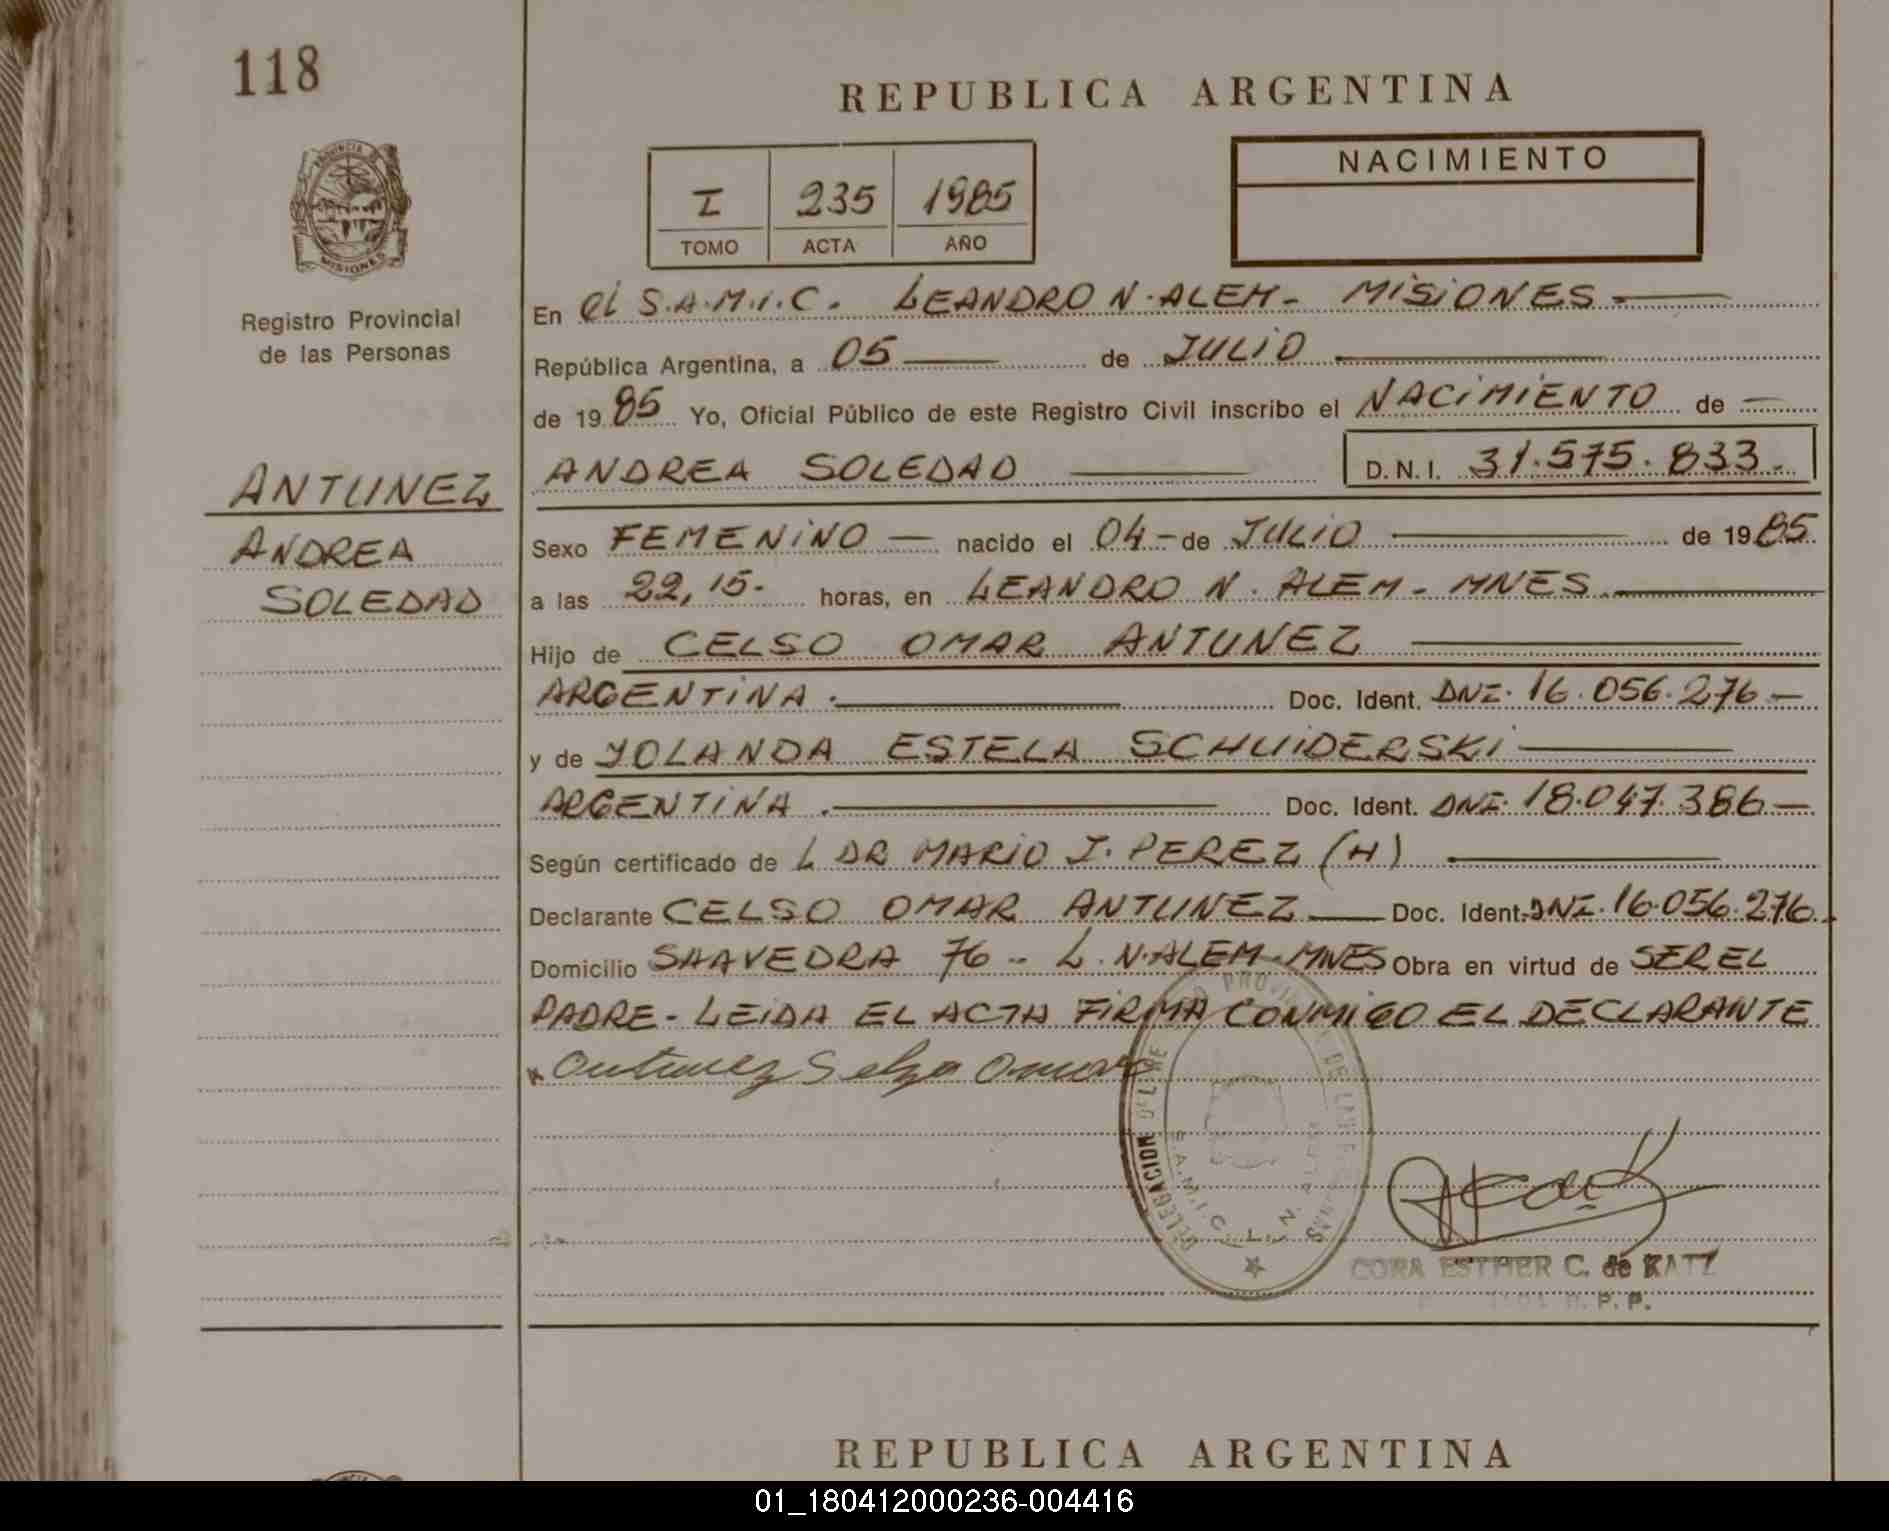 118
REPUBLICA ARGENTINA
PROVINCIA DE
MISIONES
Registro Provincial
de las Personas
I 235 1985
TOMO ACTA AÑO
NACIMIENTO
En el S.A.M.I.C. LEANDRO N. ALEM - MISIONES
República Argentina, a 05 de JULIO
de 1985 Yo, Oficial Público de este Registro Civil inscribo el NACIMIENTO de
ANDREA SOLEDAD D.N.I. 31.575.833.
ANTUNEZ
ANDREA
SOLEDAD
Sexo FEMENINO nacido el 04 de JULIO de 1985
a las 22,15. horas, en LEANDRO N. ALEM - MNES
Hijo de CELSO OMAR ANTUNEZ
ARGENTINA. Doc. Ident. DNI. 16.056.276
y de YOLANDA ESTELA SCHUIDERSKI
ARGENTINA. Doc. Ident. DNI. 18.047.386
Según certificado de L DR MARIO J. PEREZ (H)
Declarante CELSO OMAR ANTUNEZ Doc. Ident. DNI. 16.056.276.
Domicilio SAAVEDRA 76 - L. N. ALEM - MNES Obra en virtud de SER EL
PADRE - LEIDA EL ACTA FIRMA CONMIGO EL DECLARANTE
Antunez Selso Omar
DELEGACION
S.A.M.I.C. L. N. ALEM
CORA ESTHER C. de KATZ
R. P. P.
REPUBLICA ARGENTINA
01_180412000236-004416